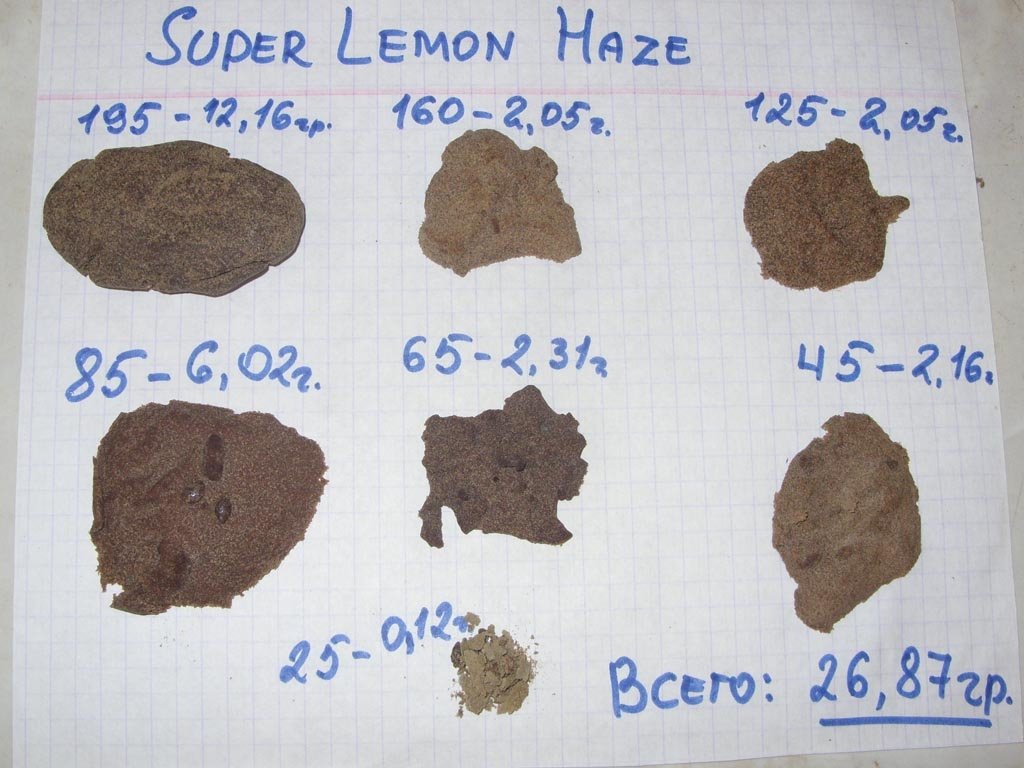 SUPER LEMON HAZE
195 - 12,16гр. 160 - 2,05г. 125 - 2,05г.
85 - 6,02г. 65 - 2,31г. 45 - 2,16г.
25 - 0,12г.
Всего: 26,87гр.